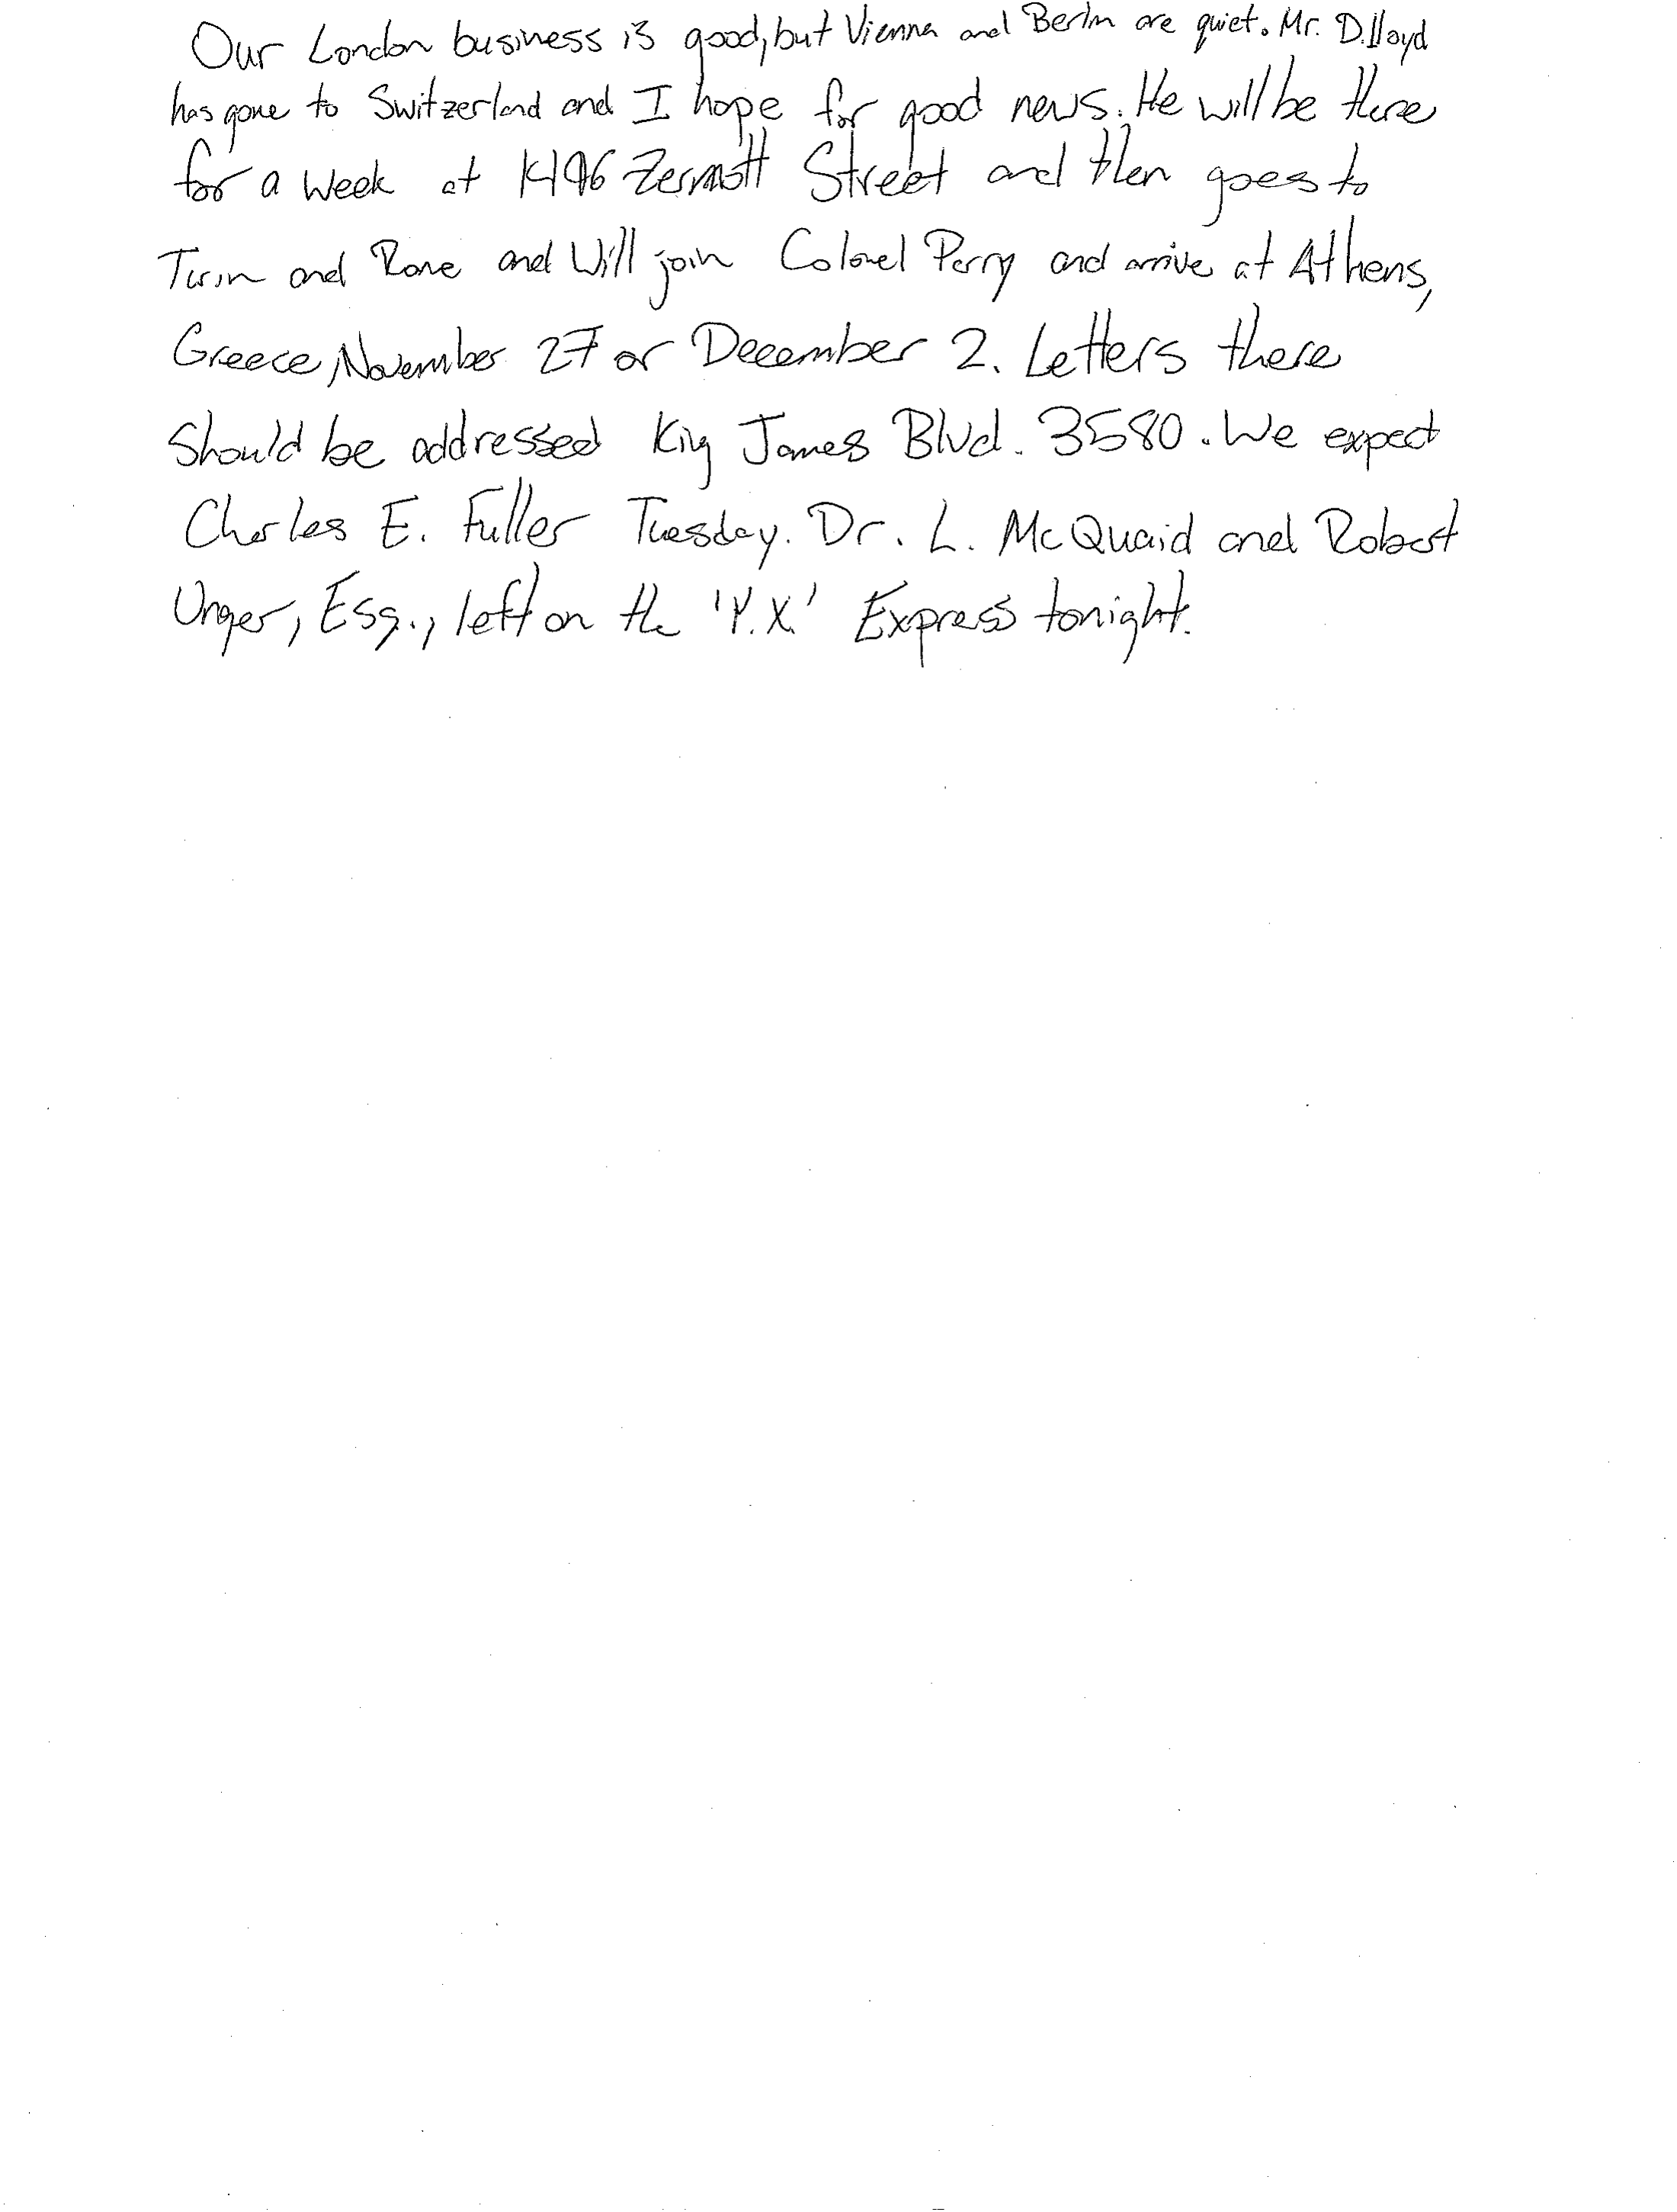 Our London business is good, but Vienna and Berlin are quiet. Mr. D. Lloyd
has gone to Switzerland and I hope for good news. He will be there
for a week at 1496 Zermott Street and then goes to
Turin and Rome and will join Colonel Parry and arrive at Athens,
Greece, November 27 or December 2. Letters there
should be addressed King James Blvd. 3580. We expect
Charles E. Fuller Tuesday. Dr. L. McQuaid and Robert
Unger, Esq., left on the 'Y.X.' Express tonight.